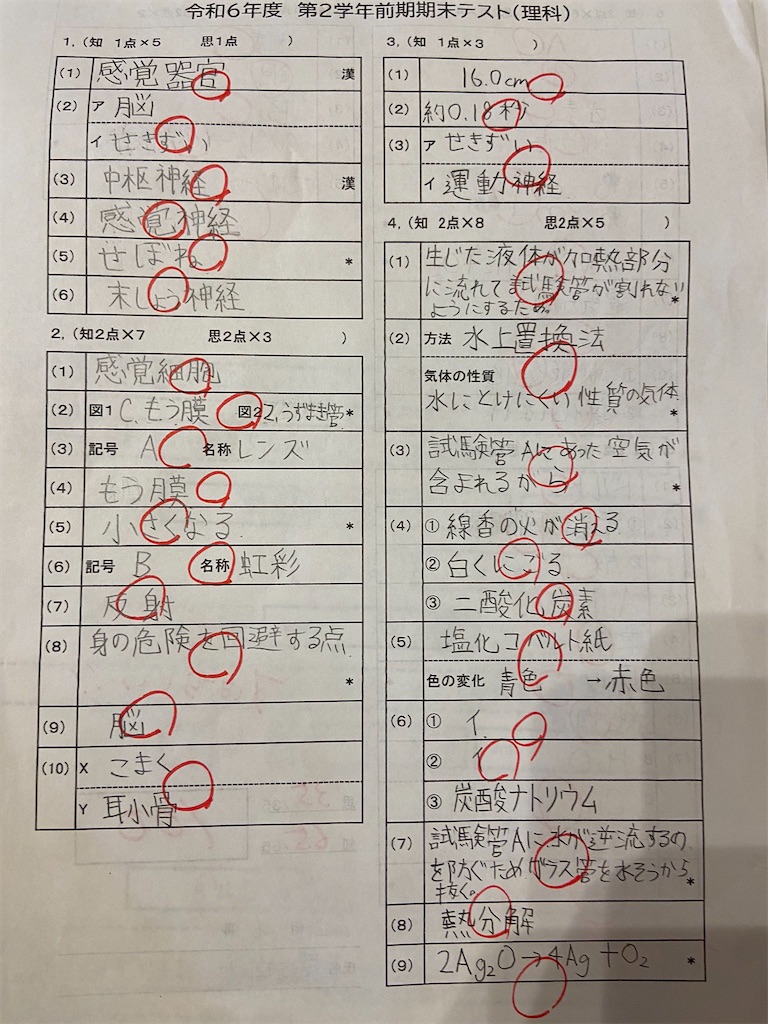 令和6年度 第2学年前期期末テスト(理科)
1, (知 1点×5 思1点 )
(1) 感覚器官 漢
(2) ア 脳
イ せきずい
(3) 中枢神経 漢
(4) 感覚神経
(5) せぼね *
(6) 末しょう神経
2, (知2点×7 思2点×3 )
(1) 感覚細胞
(2) 図1 C、もう膜 図2 Z、うずまき管 *
(3) 記号 A 名称 レンズ
(4) もう膜
(5) 小さくなる *
(6) 記号 B 名称 虹彩
(7) 反射
(8) 身の危険を回避する点
*
(9) 脳
(10) X こまく
Y 耳小骨
3, (知 1点×3 )
(1) 16.0cm
(2) 約0.18秒
(3) ア せきずい
イ 運動神経
4, (知 2点×8 思2点×5 )
(1) 生じた液体が加熱部分
に流れて試験管が割れない
ようにするため。 *
(2) 方法 水上置換法
気体の性質
水にとけにくい性質の気体
*
(3) 試験管Aにあった空気が
含まれるから *
(4) ① 線香の火が消える
② 白くにごる
③ 二酸化炭素
(5) 塩化コバルト紙
色の変化 青色 → 赤色
(6) ① イ
② イ
③ 炭酸ナトリウム
(7) 試験管Aに水が逆流するの
を防ぐためガラス管を水そうから
抜く。 *
(8) 熱分解
(9) 2Ag₂O → 4Ag + O₂ *